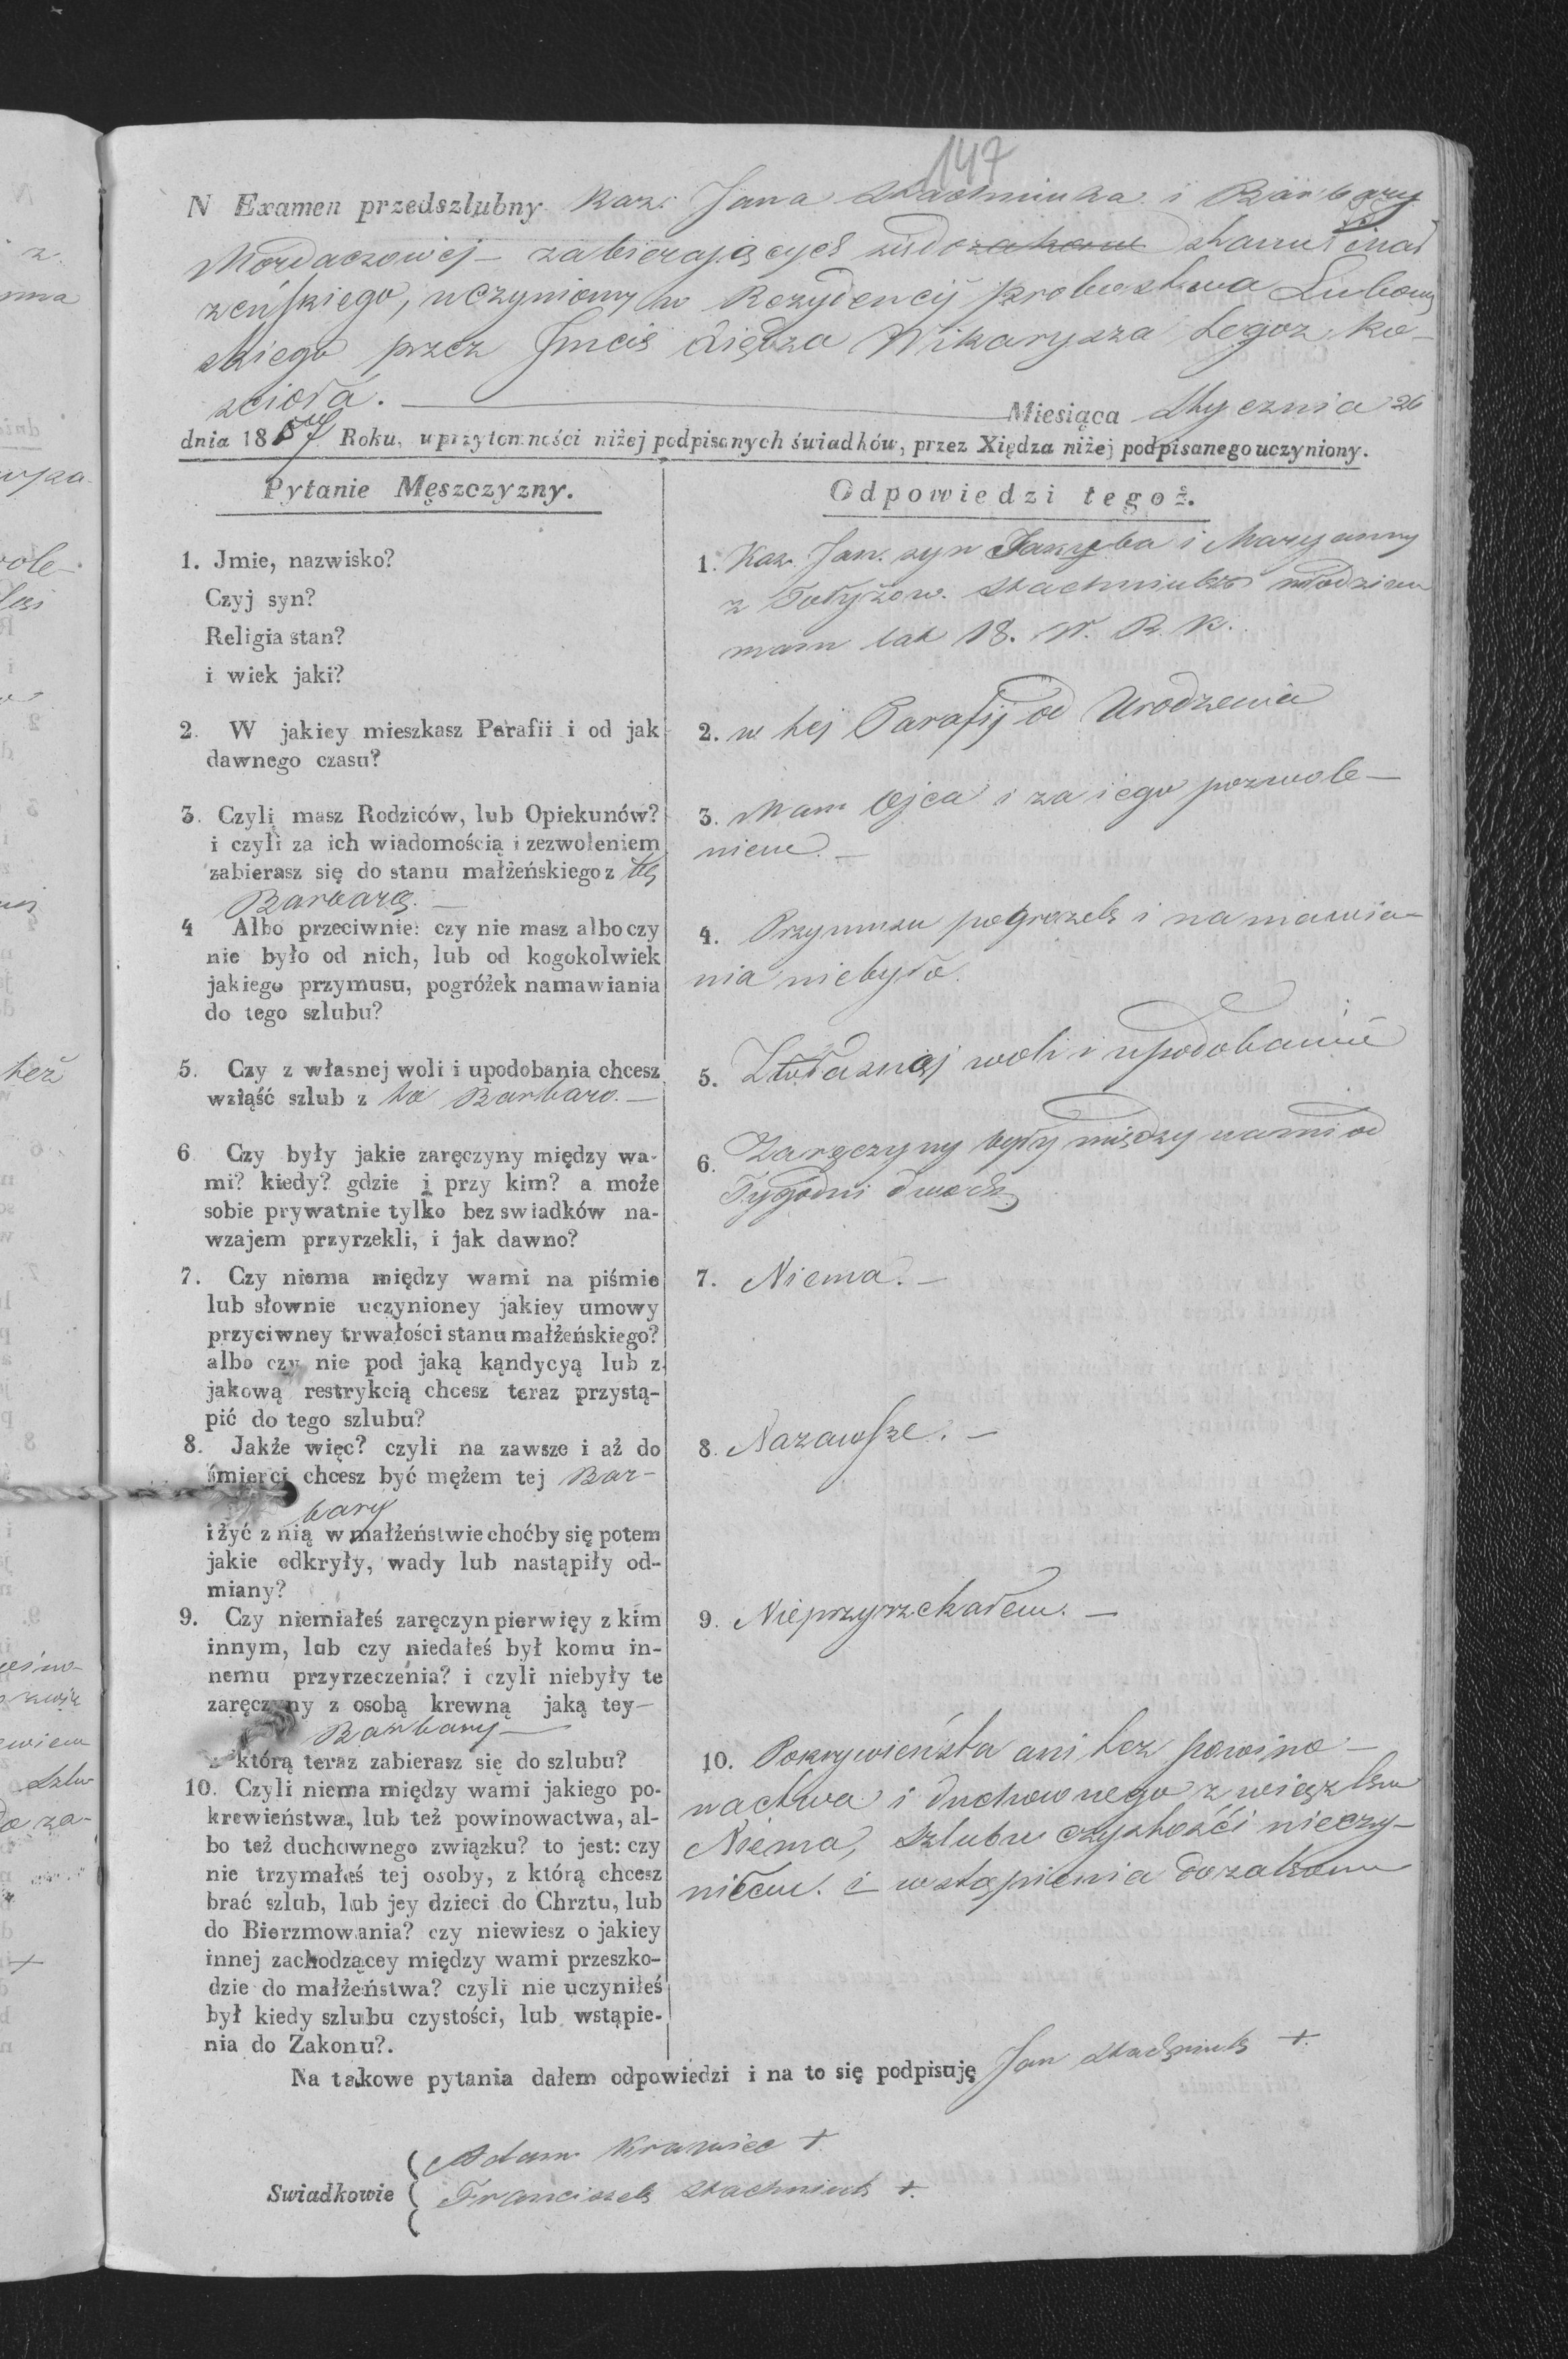 147
N Examen przedszlubny Kaz. Jana Stachniuka i Barbary
Mordaczowej — zabierających się do zakonu stanu mał
żeńskiego, uczyniony w Rezydencij Probostwa Lubow
skiego przez Jmcis Xiędza Wikaryusza tegoz ko-
scioła. — Miesiąca Stycznia 26
dnia 1857 Roku, w przytomności niżej podpisanych świadków, przez Xiędza niżej podpisanego uczyniony.
Pytanie Męszczyzny.
1. Jmie, nazwisko?
Czyj syn?
Religia stan?
i wiek jaki?
2. W jakiey mieszkasz Parafii i od jak
dawnego czasu?
3. Czyli masz Rodziców, lub Opiekunów?
i czyli za ich wiadomością i zezwoleniem
zabierasz się do stanu małżeńskiego z tą
Barbarą. —
4 Albo przeciwnie: czy nie masz albo czy
nie było od nich, lub od kogokolwiek
jakiego przymusu, pogróżek namawiania
do tego szlubu?
5. Czy z własnej woli i upodobania chcesz
wziąść szlub z to Barbaro. —
6 Czy były jakie zaręczyny między wa-
mi? kiedy? gdzie i przy kim? a może
sobie prywatnie tylko bez swiadków na-
wzajem przyrzekli, i jak dawno?
7. Czy niema między wami na piśmie
lub słownie uczynioney jakiey umowy
przyciwney trwałości stanu małżeńskiego?
albo czy nie pod jaką kąndycyą lub z
jakową restrykcią chcesz teraz przystą-
pić do tego szlubu?
8. Jakże więc? czyli na zawsze i aż do
śmierci chcesz być mężem tej Bar-
bary
i żyć z nią w małżeństwie choćby się potem
jakie odkryły, wady lub nastąpiły od-
miany?
9. Czy niemiałeś zaręczyn pierwięy z kim
innym, lub czy niedałeś był komu in-
nemu przyrzeczenia? i czyli niebyły te
zaręczyny z osobą krewną jaką tey —
Barbary —
z którą teraz zabierasz się do szlubu?
10. Czyli niema między wami jakiego po-
krewieństwa, lub też powinowactwa, al-
bo też duchownego związku? to jest: czy
nie trzymałeś tej osoby, z którą chcesz
brać szlub, lub jey dzieci do Chrztu, lub
do Bierzmowania? czy niewiesz o jakiey
innej zachodzącey między wami przeszko-
dzie do małżeństwa? czyli nie uczyniłeś
był kiedy szlubu czystości, lub wstąpie-
nia do Zakonu?.
Odpowiedzi tegoż.
1. Kaz. Jan. syn Jakyba i Maryanny
z Stachniuko młodzian
mam lat 18. W. R. K.
2. w tej Parafij od Urodzenia
3. Mam Ojca i za iego pozwole —
niem. —
4. Przymusu pogrozek i namawia-
nia niebyło.
5. Z własnej woli i upodobania
6. Zaręczyny były między nami od
Tygodni dwoch
7. Niema. —
8. Nazawsze. —
9. Nieprzyrzekałem. —
10. Pokrywieństa ani tez powino —
nactwa i duchownego związku
Niema, szlubu czystości nieczy-
niłem. i wstąpienia do zakonu
Na takowe pytania dałem odpowiedzi i na to się podpisuję Jan Stachniuk +.
Swiadkowie
Adam Krawiec +.
Franciszek Stachniuk +.